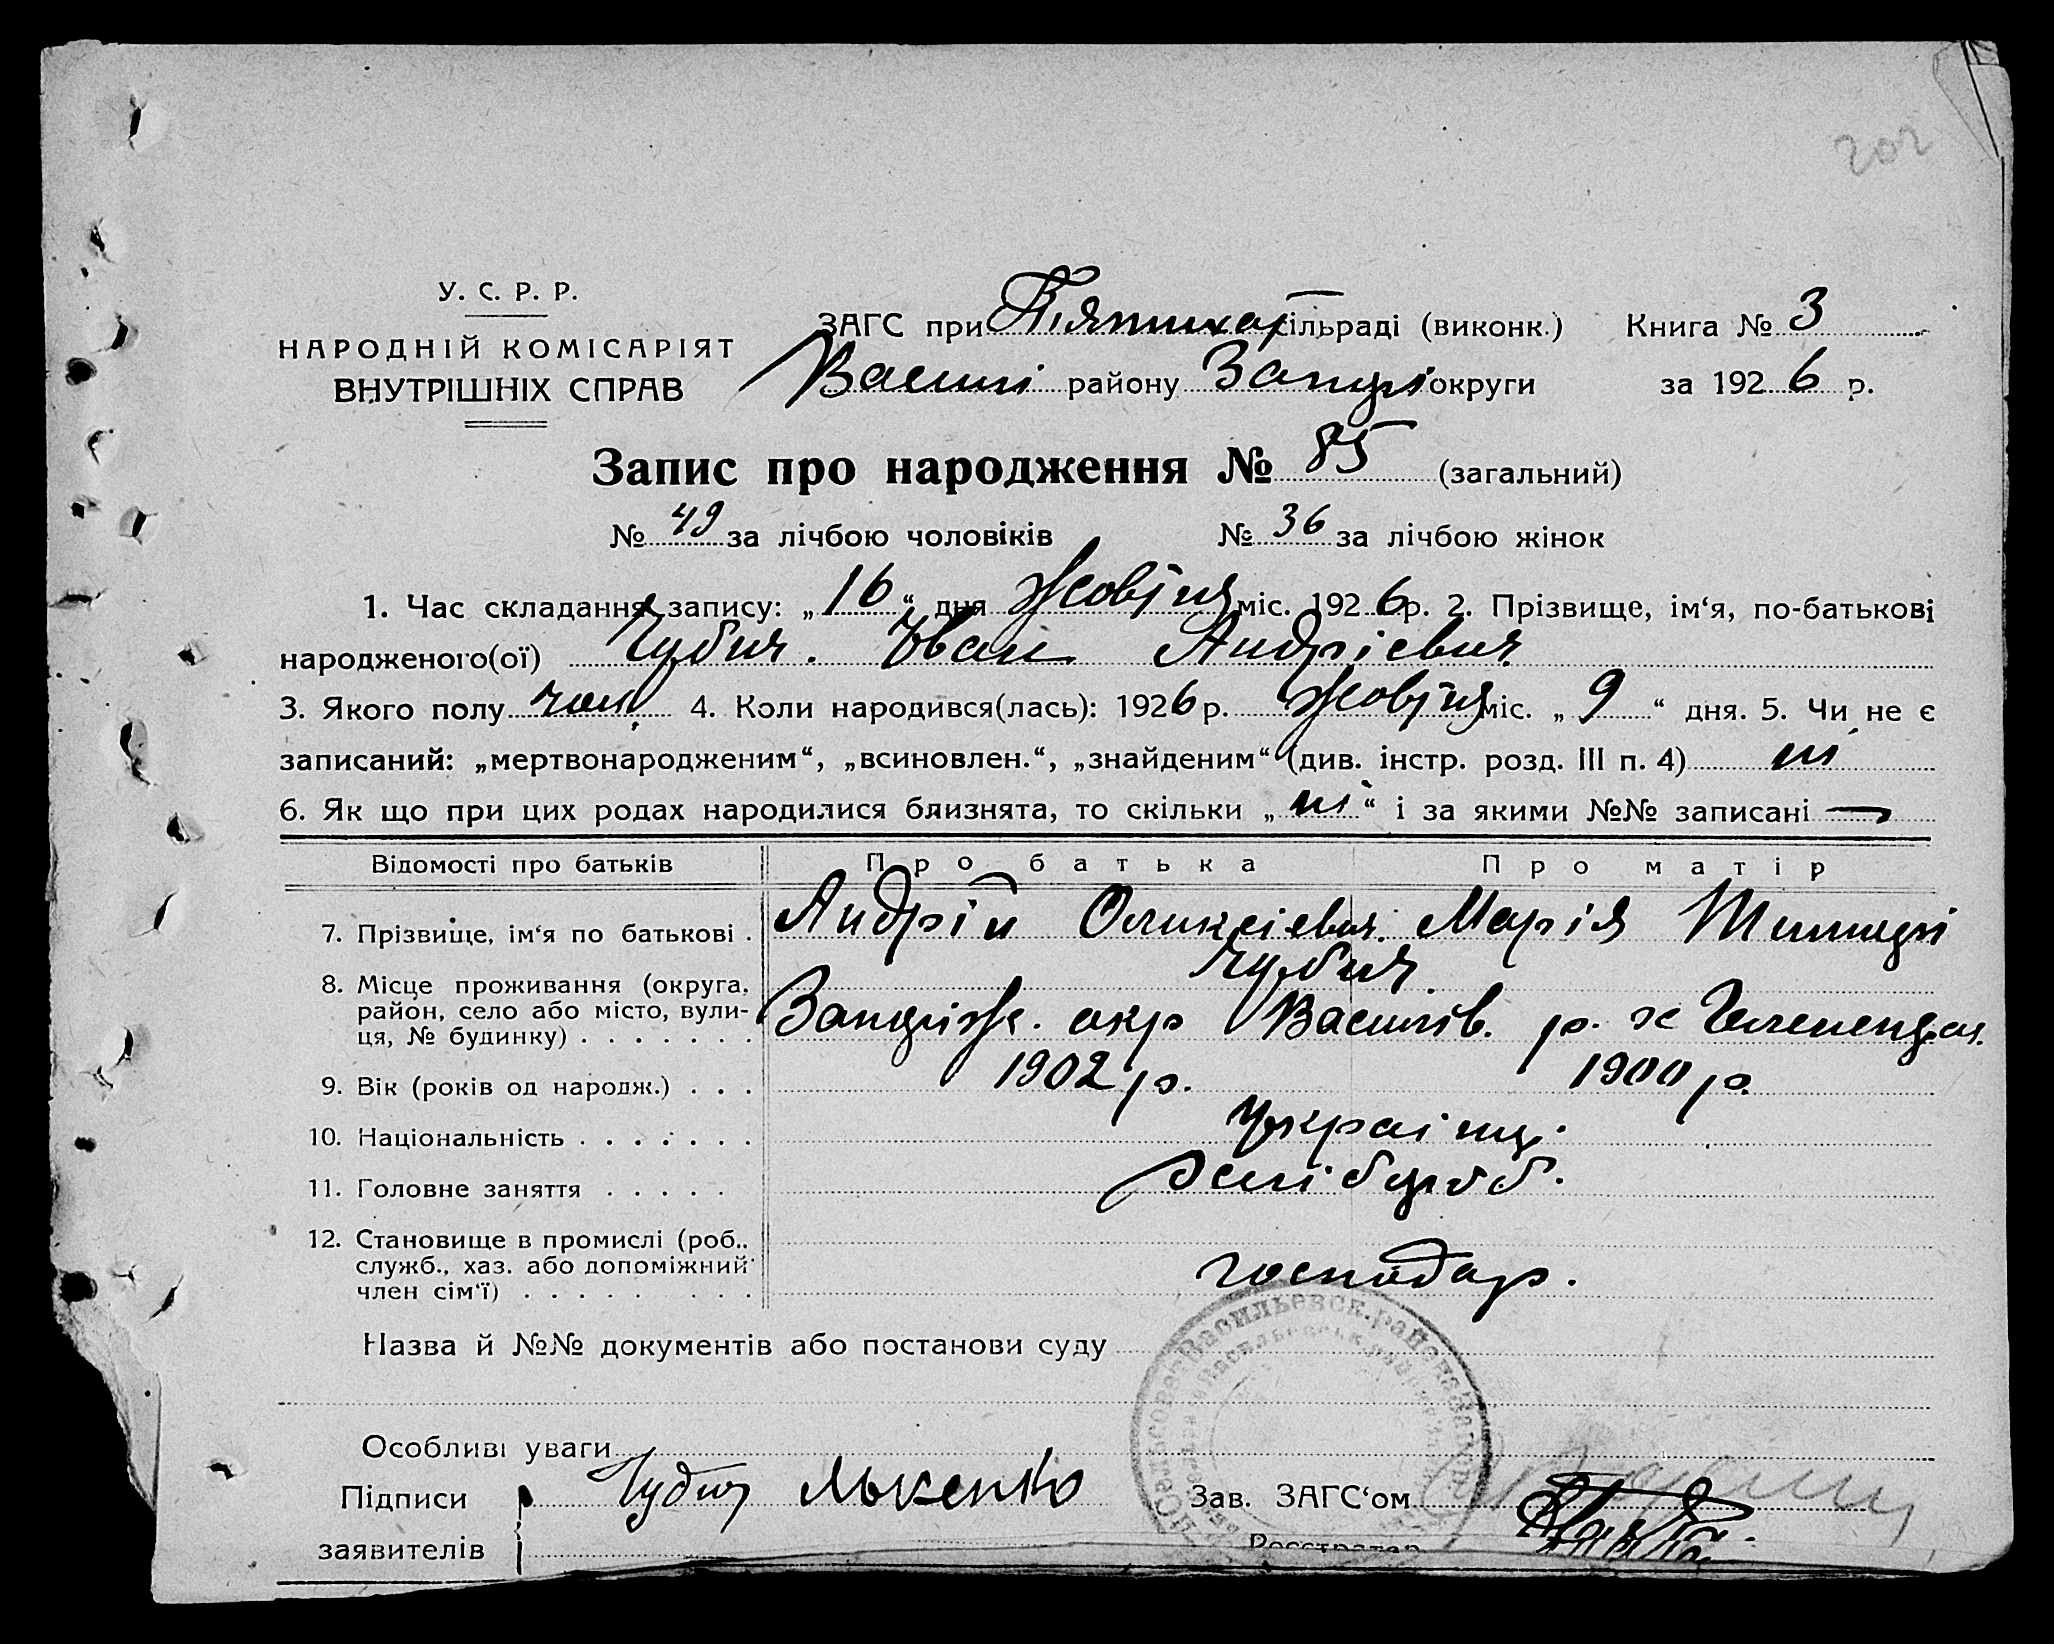 202
У. С. Р. Р.
НАРОДНІЙ КОМІСАРІЯТ
ВНУТРІШНІХ СПРАВ
ЗАГС при Пятихат сільраді (виконк.) Книга № 3
Василі району Запорі округи за 1926 р.
Запис про народження № 85 (загальний)
№ 49 за лічбою чоловіків № 36 за лічбою жінок
1. Час складання запису: „16“ дня Жовтня міс. 1926 р. 2. Прізвище, ім‘я, по-батькові
народженого(ої) Чубич. Іван Андрієвич
3. Якого полу чол. 4. Коли народився(лась): 1926 р. Жовтня міс. „9“ дня. 5. Чи не є
записаний: „мертвонародженим“, „всиновлен.“, „знайденим“ (див. інстр. розд. III п. 4) ні
6. Як що при цих родах народилися близнята, то скільки „ні“ і за якими №№ записані —
Відомості про батьків Про батька Про матір
7. Прізвище, ім‘я по батькові . Андрій Олик‌сієвич. Марія
Чубич.
8. Місце проживання (округа,
район, село або місто, вули-
ця, № будинку) . . . . . . . Запоріж. окр Василів. р. х
9. Вік (років од народж.) . . . 1902 р. 1900 р.
10. Національність . . . . . . . Україн‌ці.
11. Головне заняття . . . . . хлібороб.
12. Становище в промислі (роб.,
служб., хаз. або допоміжний
член сім‘ї) . . . . . . . . господар.
Назва й №№ документів або постанови суду
Особливі уваги
Підписи Чубич
Зав. ЗАГС‘ом
заявителів
Реєстратор